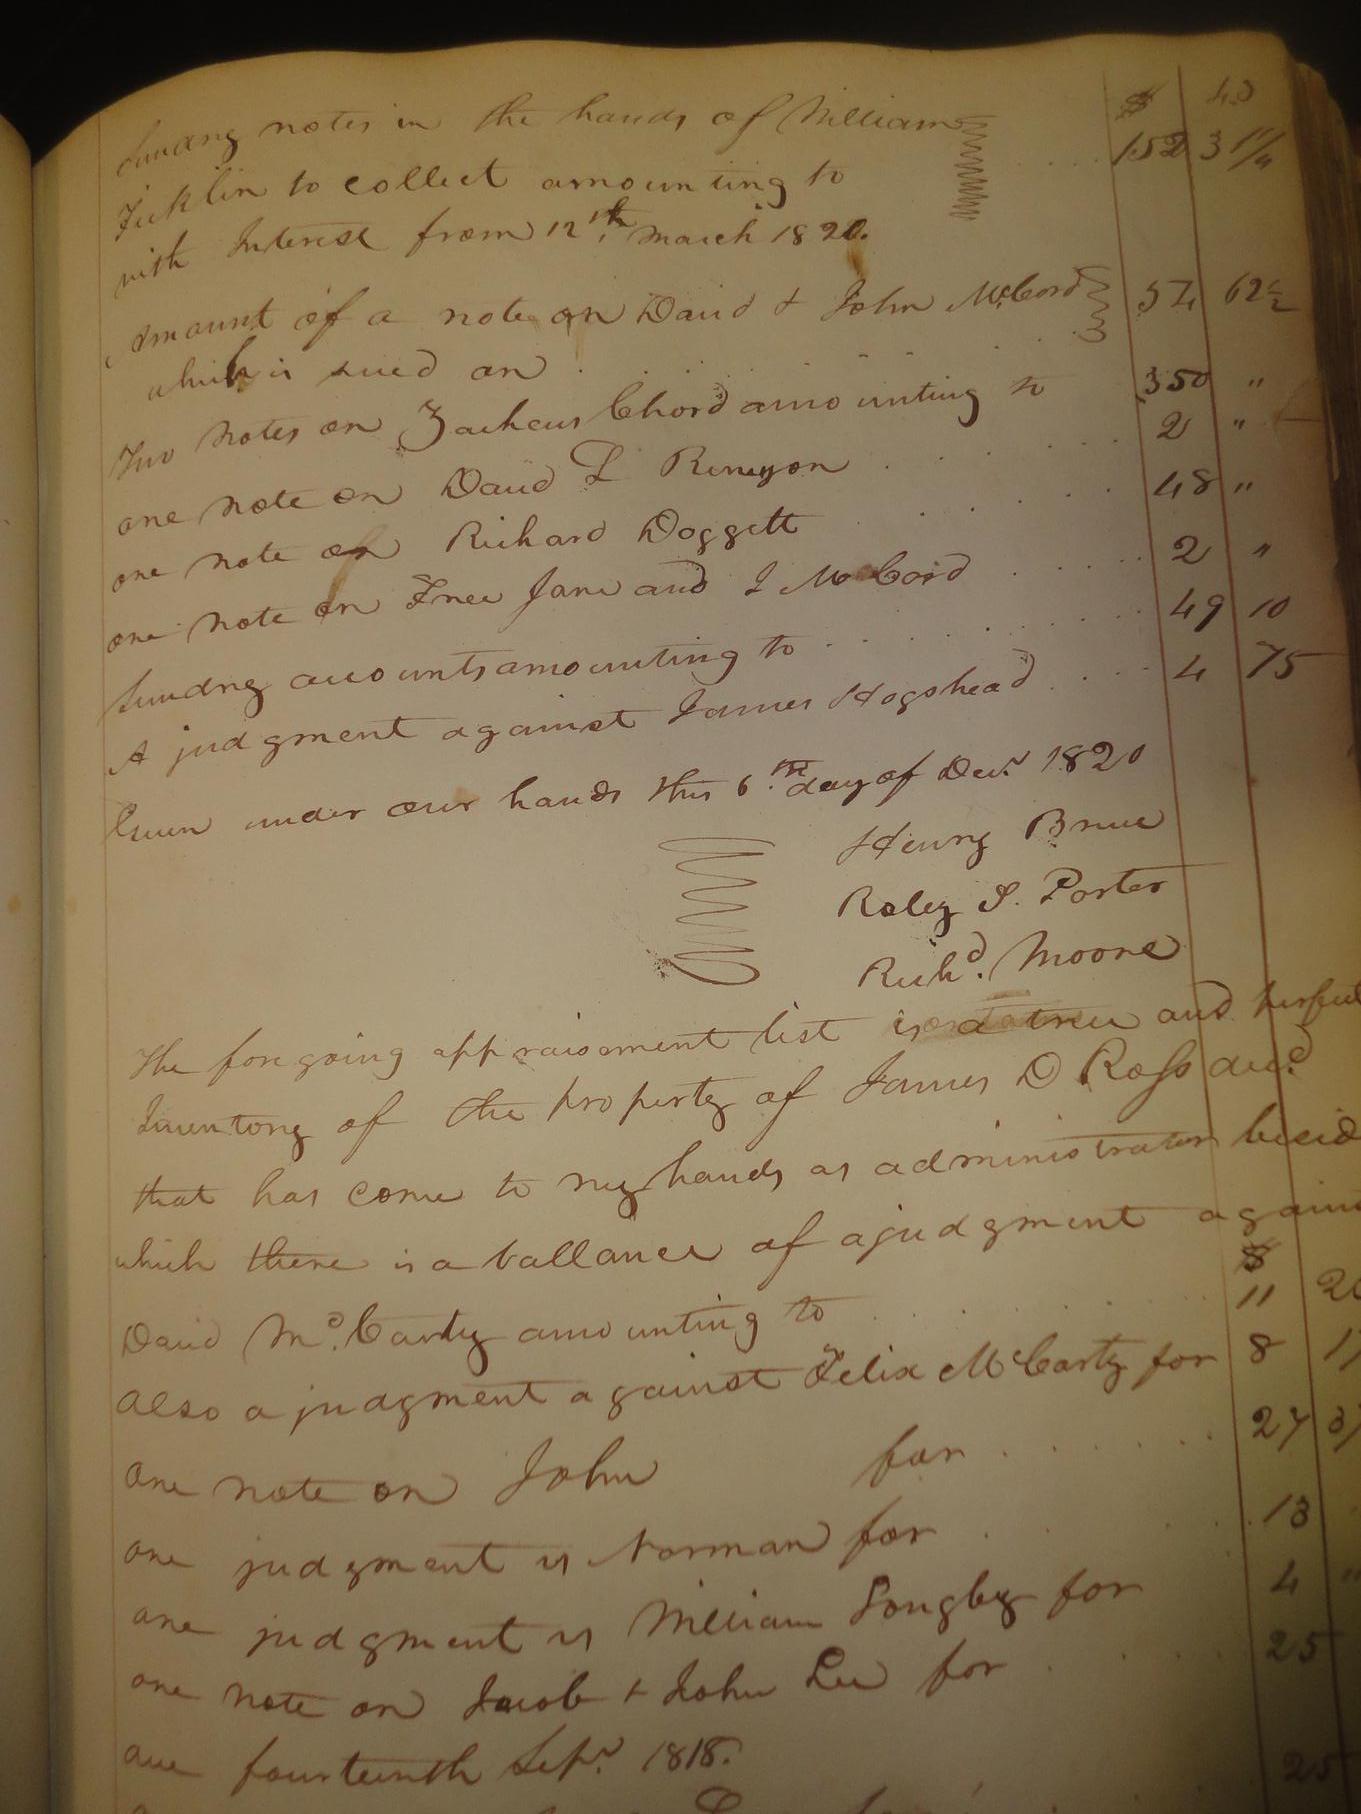 Sundry notes in the hands of William
Ficklin to collect amounting to 152
with Interest from 12th March 1820.
Amount of a note on David & John McCord 54 62½
which is sued on
Two Notes on Zacheus Chord amounting to 350 "
one note on David L Runyon 2 "
one note on Richard Doggett 48 "
one note on Free Jane and J McCord 2 "
Sundry accounts amounting to 49 10
A judgment against James Hogshead 4 75
Given under our hands this 6th day of Decr 1820
Henry Bruce
Roley S. Porter
Richd. Moore
The foregoing appraisement list is a true and perfect
Inventory of the property of James D Ross decd
that has come to my hands as administrator besid
which there is a ballance of a judgment against
$
David Mc. Carty amounting to 11 20
Also a judgment against Felix McCarty for 8
one note on John for 27
one judgment vs Norman for 13
one judgment vs William Longley for 4 "
one note on Jacob & John Lee for 25
due fourteenth Sepr. 1818.
25